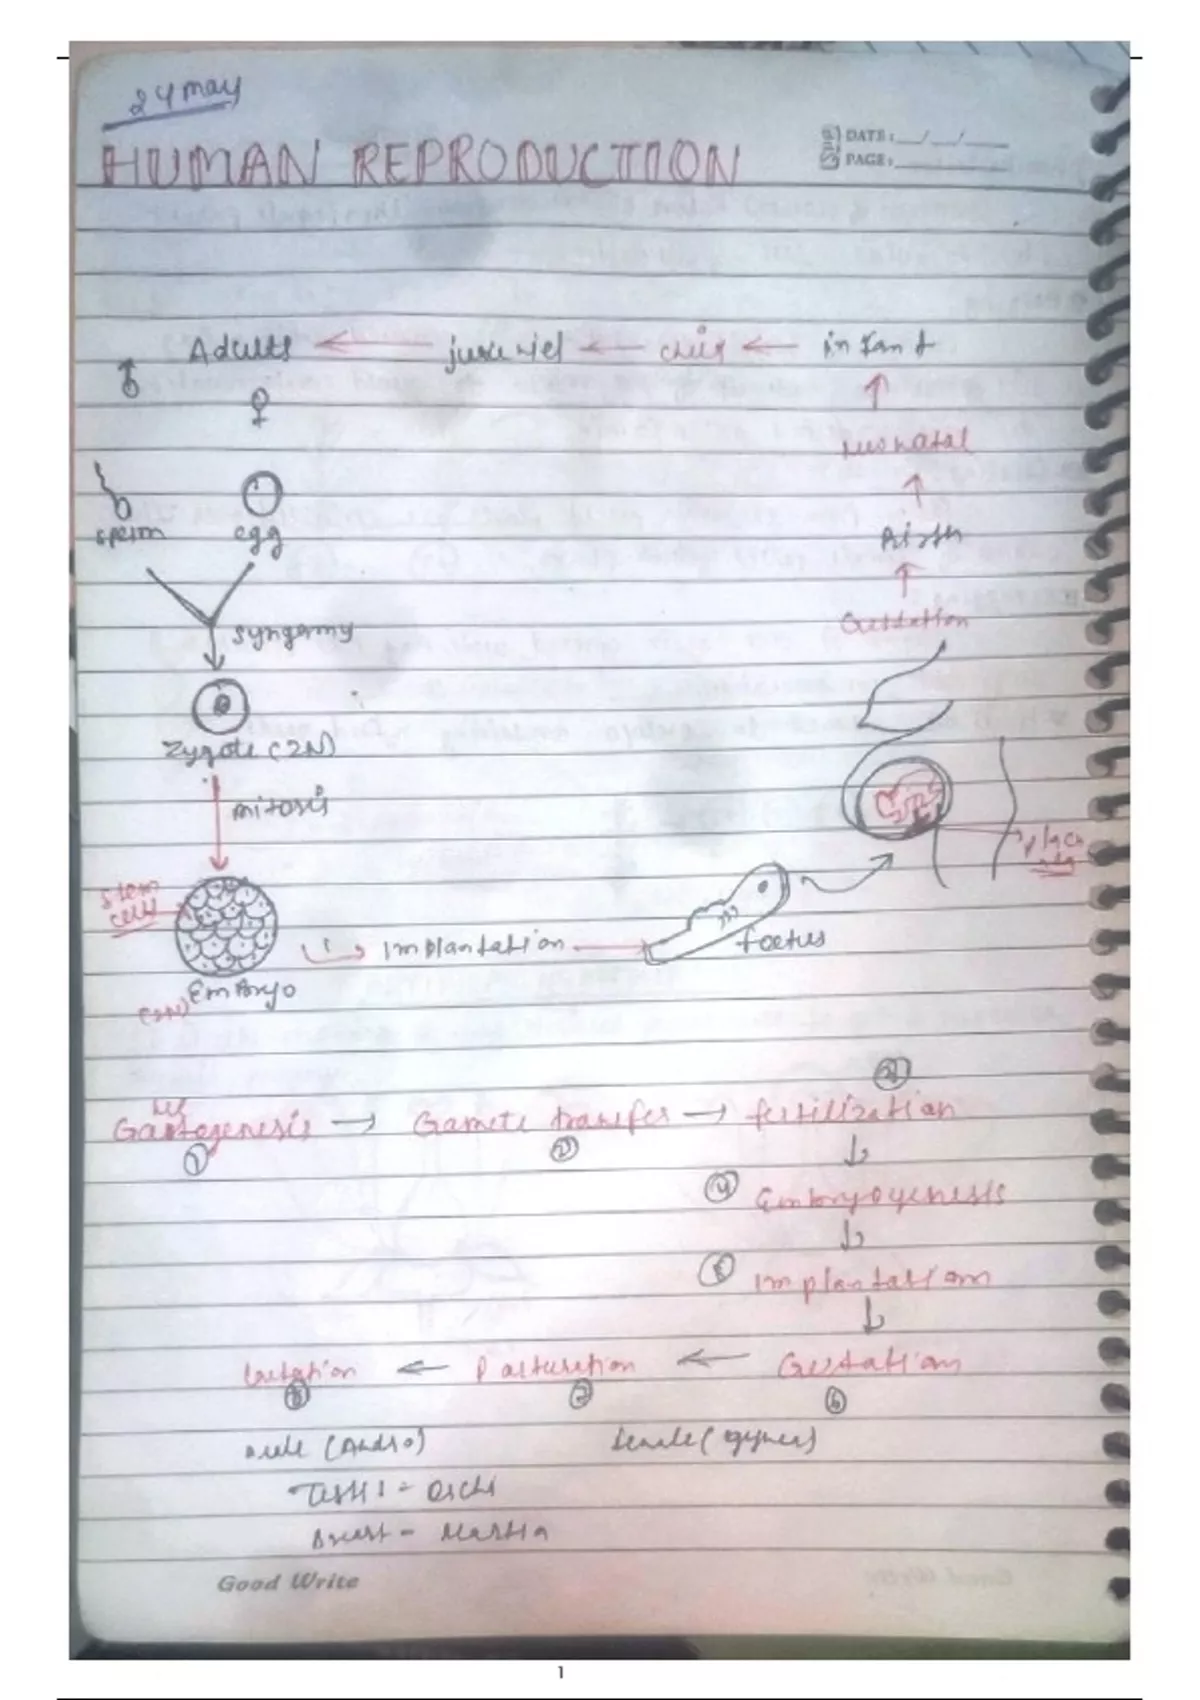 24 may
DATE: __/__/__
PAGE:
HUMAN REPRODUCTION
Adults ← ← child ← infant
♂ ♀ ↑
Neonatal
↑
sperm egg Birth
↑
syngamy Gestation
Zygote (2N)
mitosis
placenta
stem
cells
Implantation → foetus
Embryo
(2N)
Gametogenesis → Gamete transfer → fertilization
① ② ③
↓
④ Embryogenesis
↓
⑤ Implantation
↓
Lactation ← Parturition ← Gestation
⑧ ⑦ ⑥
male (Andro) female (gynea)
Testis = Orchi
Breast =
Good Write
1